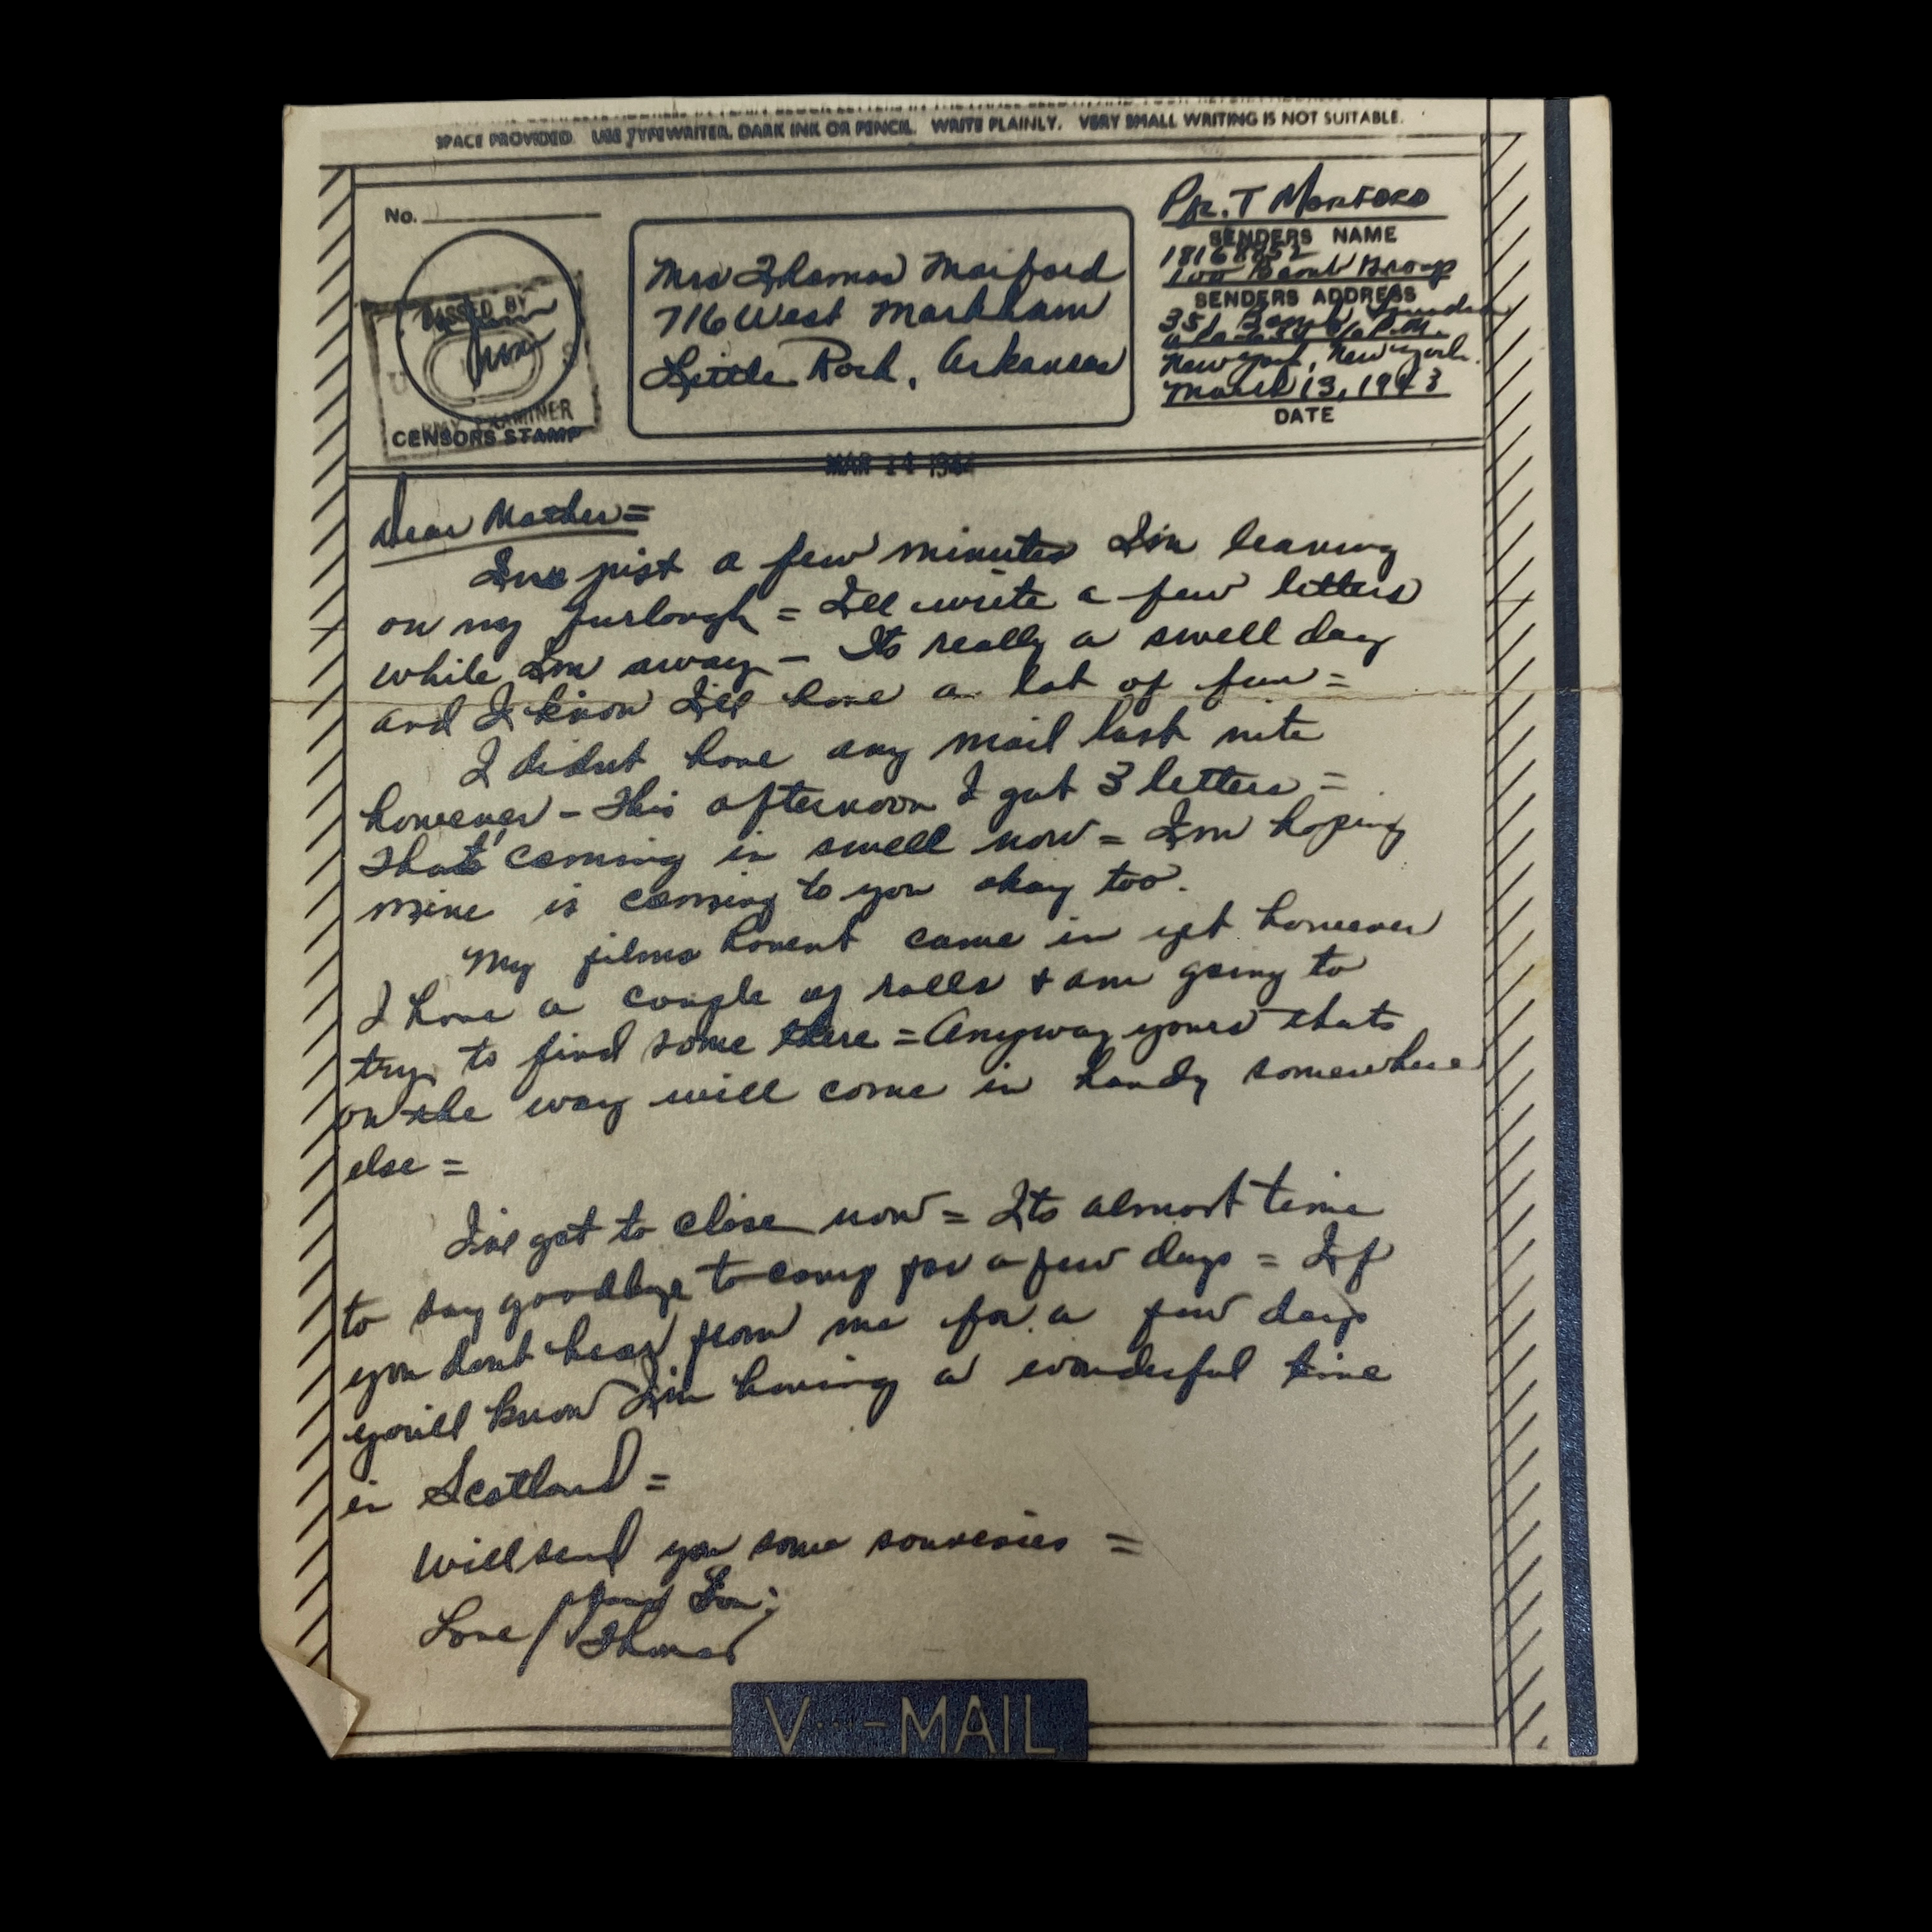 SPACE PROVIDED. USE TYPEWRITER, DARK INK OR PENCIL. WRITE PLAINLY. VERY SMALL WRITING IS NOT SUITABLE.
No.
PASSED BY
ARMY EXAMINER
CENSORS STAMP
Mrs Thomas Morford
716 West Markham
Little Rock, Arkansas
T MORFORD
SENDERS NAME
18168852
100 Bomb Group
SENDERS ADDRESS
351 Bomb Squadron
New York, New York.
March 13, 1943
DATE
MAR 14 1944
Dear Mother =
In just a few minutes Im leaving
on my furlough = Ill write a few letters
while Im away - Its really a swell day
and I know Ill have a lot of fun =
I didnt have any mail last nite
however - This afternoon I got 3 letters =
Thats coming in swell now = Im hoping
mine is coming to you okay too.
My films havent came in yet however
I have a couple of rolls + am going to
try to find some there = Anyway yours thats
on the way will come in handy somewhere
else =
I've got to close now = Its almost time
to say goodbye to camp for a few days = If
you dont hear from me for a few days
you'll know Im having a wonderful time
in Scotland =
Will send you some souvenirs =
Love / Your Son;
Thomas
V···-MAIL